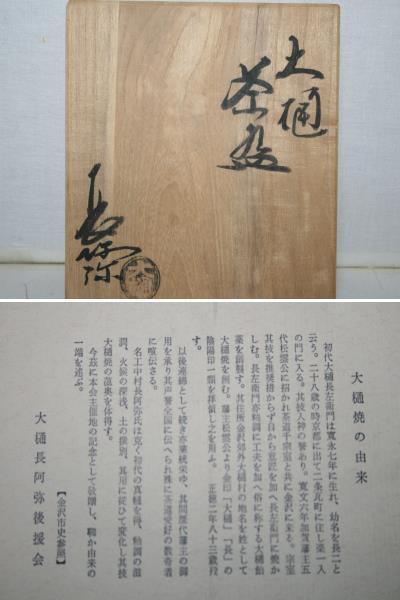 大樋
茶盌
長阿弥
大樋焼の由来
初代大樋長左衛門は寛永七年に生れ、幼名を長二と
云う。二十八歳の時京都に出て二条瓦町に住し楽一入
の門に入る。其技入神の誉あり。寛文六年加賀藩主五
代松雲公に招かれ茶道千宗室と共に金沢に来る。宗室
其技を推奨措からず自から意匠を加へ長左衛門に焼か
しむ。長左衛門亦釉調に工夫を加へ俗に称する大樋飴
薬を創製す。其住所金沢郊外大樋村の地名を姓として
大樋焼を創む。藩主松雲公より金印「大樋」「長」の
陰陽印一顆を拝領し之を用ふ。 正徳二年八十三歳歿
す。
以後連綿として続き亦業統栄ゆ、其間歴代藩主の御
用を承り其声誉全国に伝へられ殊に茶道愛好の数奇者
に喧伝さる。
名工中村長阿弥氏は克く初代の真髄を得、釉調の滋
潤、火候の深浅、土の撰別、其用に従ひて変化し其技
大樋焼の真奥を体得す。
今茲に本会主催地の記念として敬贈し、聊か由来の
一端を述ぶ。
【金沢市史参照】
大樋長阿弥後援会